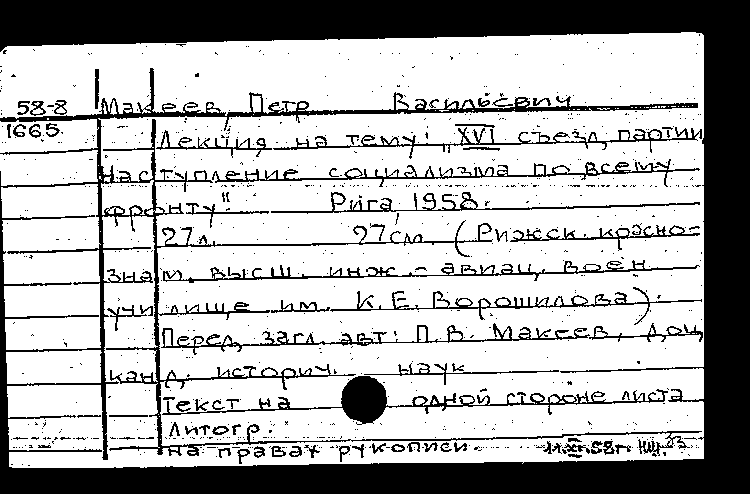 58-8 Макеев, Петр Васильевич
1665
Лекция на тему: „XVI съезд партии
наступление социализма по всему
фронту". Рига, 1958.
27л. 27см. (Рижск. красно=
знам. высш. инж.-авиац. воен
училище им. К.Е. Ворошилова).
Перед загл. авт: П.В. Макеев, доц,
канд. историч. наук
Текст на одной стороне листа
Литогр.
на правах рукописи. 11.XI.58г.